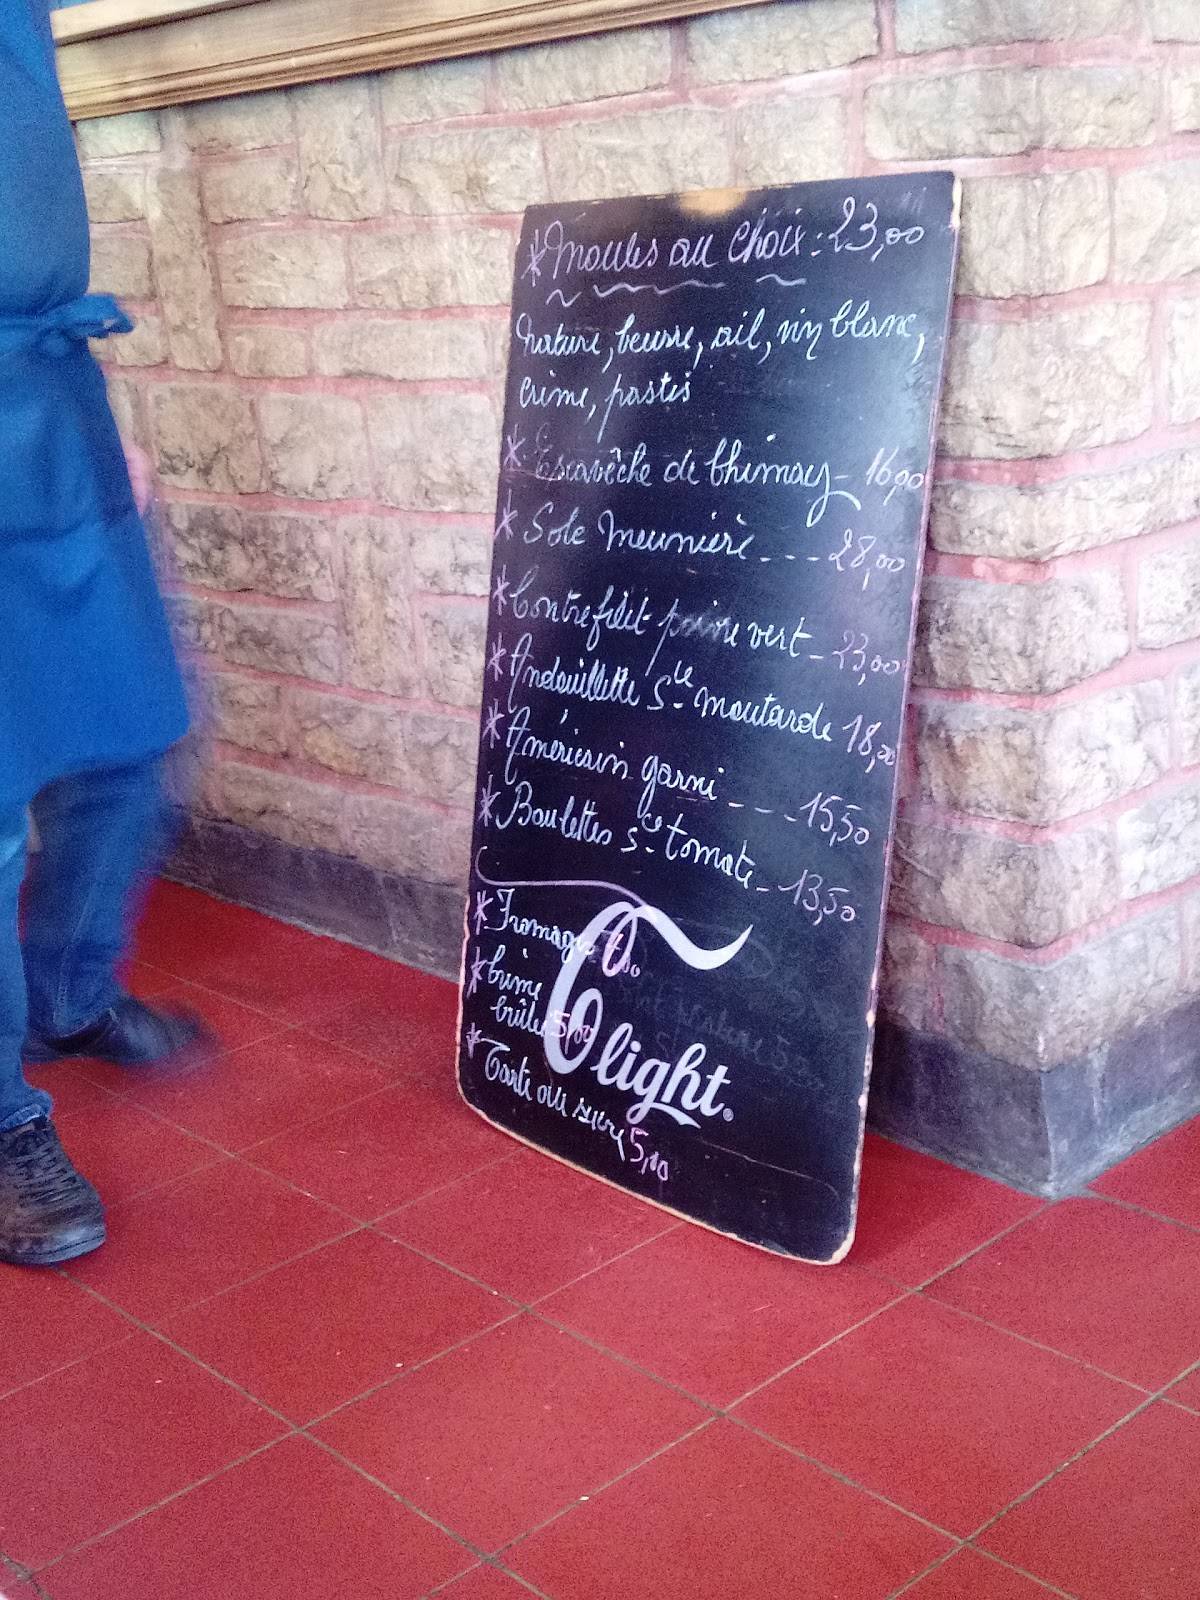 *Moules au choix : 23,00
nature, beurre, ail, vin blanc,
crème, pastis
* Escavêche de Chimay - 16,00
* Sole meunière - - - 28,00
* Contrefilet poivre vert - 23,00
* Andouillette Sce moutarde 18,00
* Américain garni - - - 15,50
* Boulettes Sce tomate - 13,50
* Fromages 7,00
* Crème
brûlée 5,00
light®
* Tarte au sucre 5,00